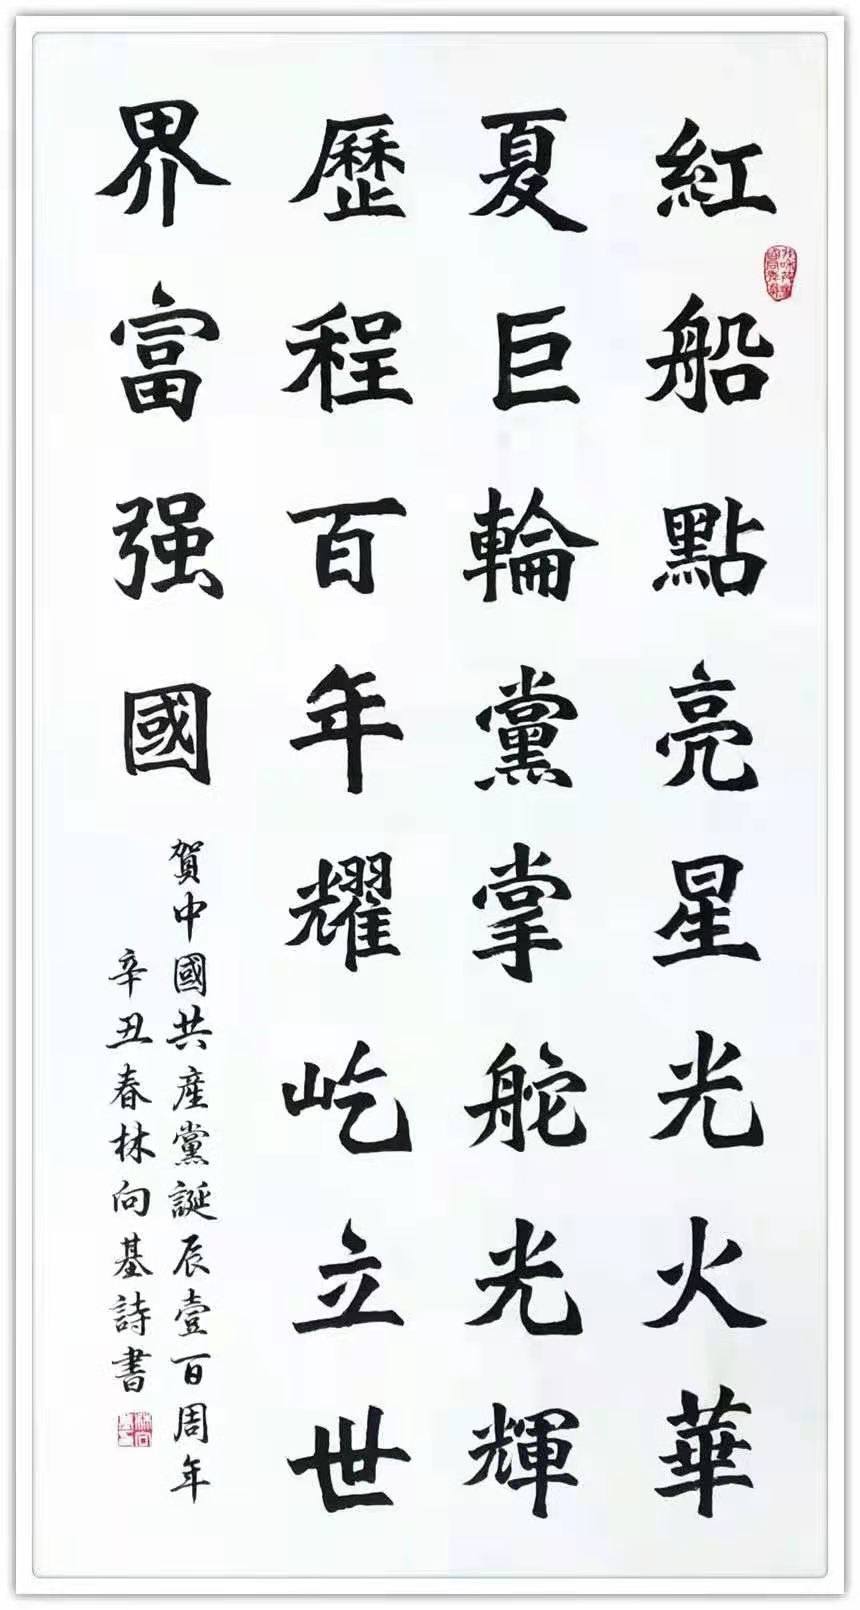 紅船點亮星光火華
夏巨輪黨掌舵光輝
歷程百年耀屹立世
界富强國
賀中國共産黨誕辰壹百周年
辛丑春林向基詩書